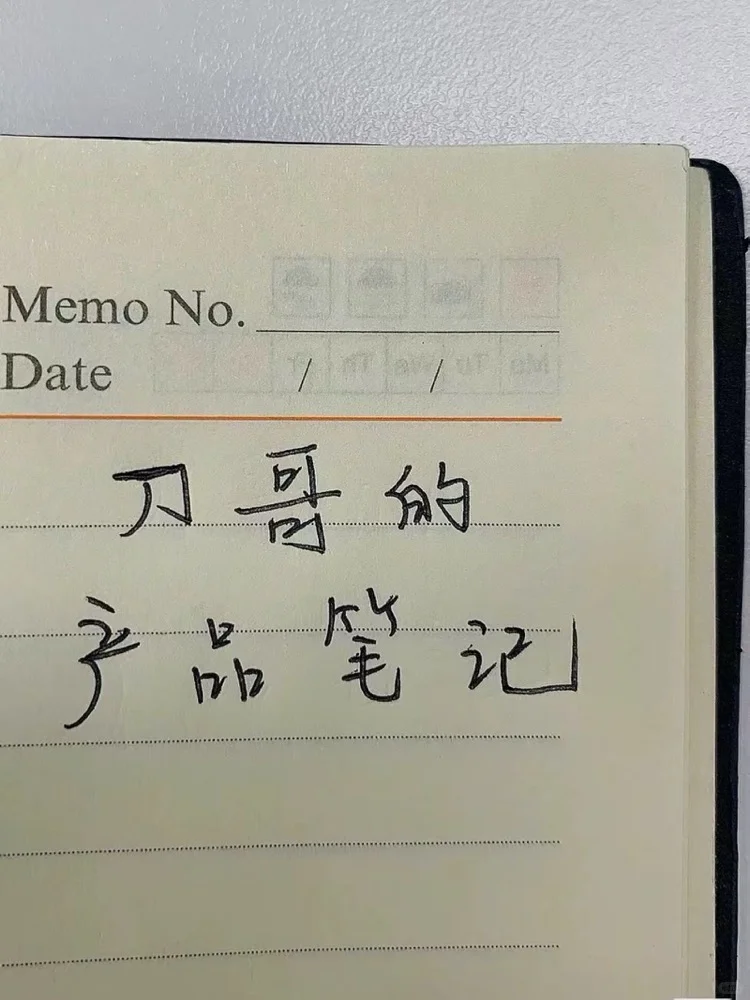 Memo No.
Date / /
刀哥的
产品笔记